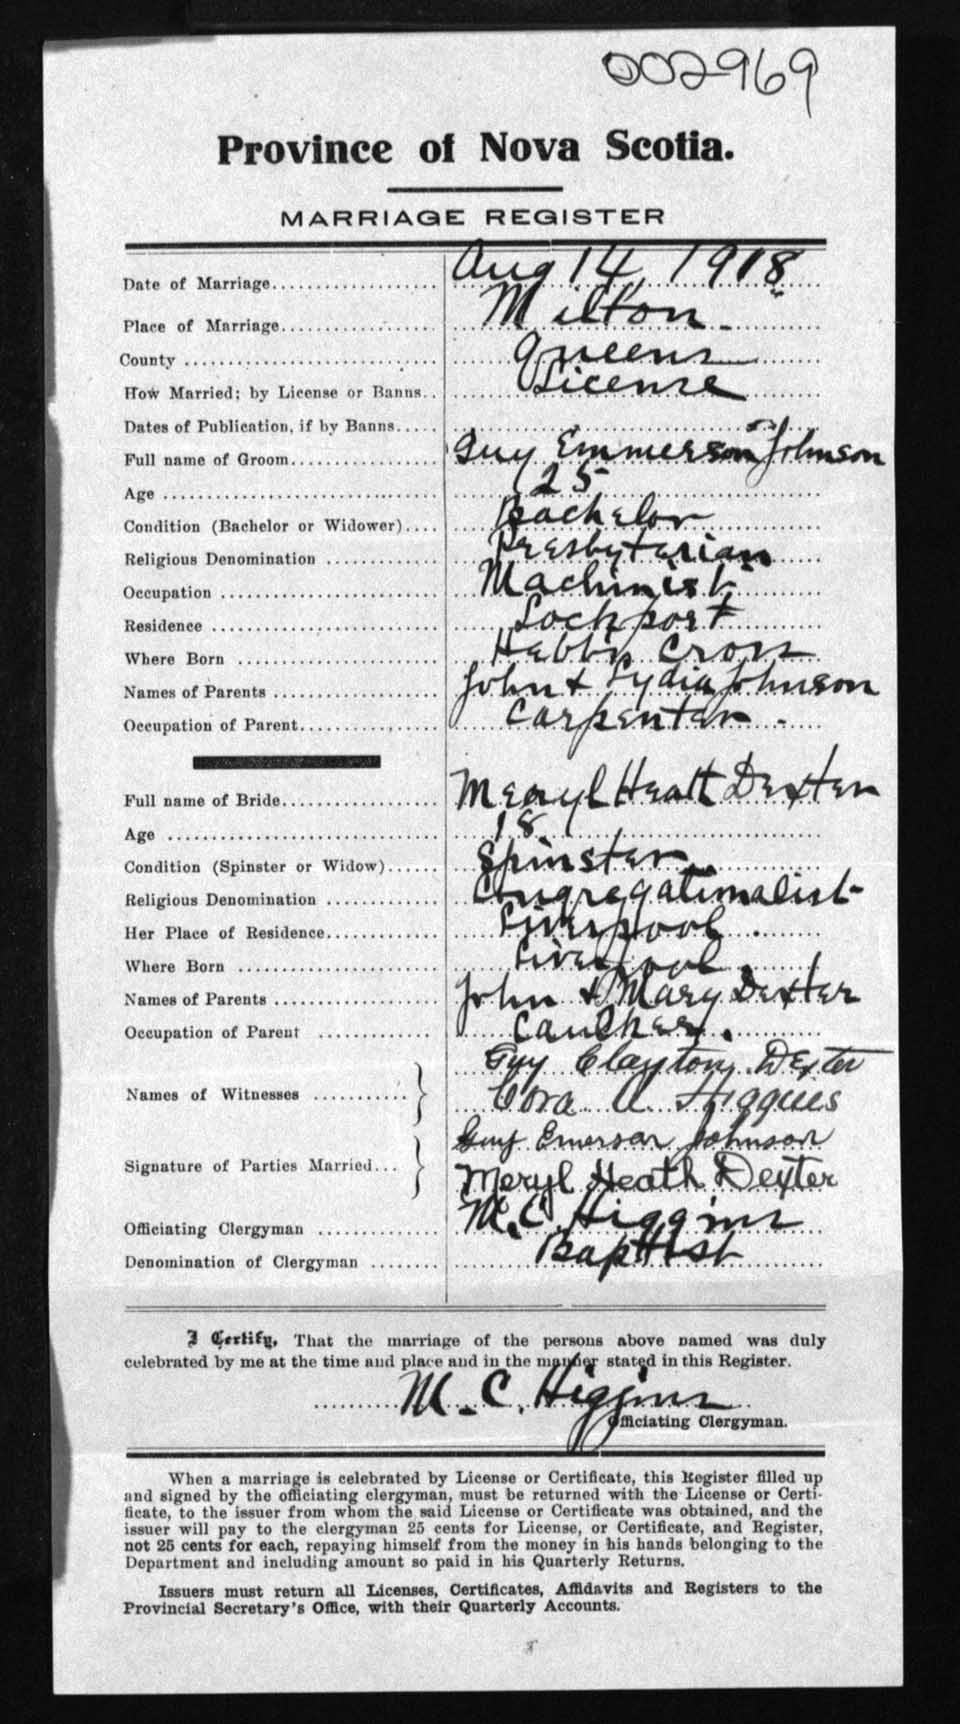 002969
Province of Nova Scotia.
MARRIAGE REGISTER
Date of Marriage Aug 14, 1918
Place of Marriage Milton
County Queens
How Married; by License or Banns License
Dates of Publication, if by Banns
Full name of Groom Guy Emmerson Johnson
Age 25
Condition (Bachelor or Widower) Bachelor
Religious Denomination Presbyterian
Occupation Machinist
Residence Lockport
Where Born Hebbs Cross
Names of Parents John & Lydia Johnson
Occupation of Parent Carpenter
Full name of Bride Meryl Heath Dexter
Age 18
Condition (Spinster or Widow) Spinster
Religious Denomination Congregationalist
Her Place of Residence Liverpool
Where Born Liverpool
Names of Parents John & Mary Dexter
Occupation of Parent Caulker
Names of Witnesses Guy Clayton Dexter
Cora A. Higgins
Signature of Parties Married Guy Emerson Johnson
Meryl Heath Dexter
Officiating Clergyman M. C. Higgins
Denomination of Clergyman Baptist
I Certify, That the marriage of the persons above named was duly
celebrated by me at the time and place and in the manner stated in this Register.
M. C. Higgins
Officiating Clergyman.
When a marriage is celebrated by License or Certificate, this Register filled up
and signed by the officiating clergyman, must be returned with the License or Certi-
ficate, to the issuer from whom the said License or Certificate was obtained, and the
issuer will pay to the clergyman 25 cents for License, or Certificate, and Register,
not 25 cents for each, repaying himself from the money in his hands belonging to the
Department and including amount so paid in his Quarterly Returns.
Issuers must return all Licenses, Certificates, Affidavits and Registers to the
Provincial Secretary's Office, with their Quarterly Accounts.